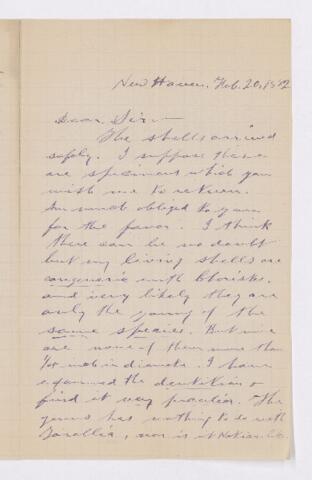 New Haven, Feb. 20, 18
Dear Sir—
The shells arrived
safely. I suppose these
are specimens which you
wish me to return.
Am much obliged to you
for the favor. I think
there can be no doubt
but my living shells are
congeneric with
and very likely they are
only the young of the
same species. But mine
are none of them more than
inch in diameter. I have
examined the dentition &
find it very peculiar. The
genus has nothing to do with
nor is it